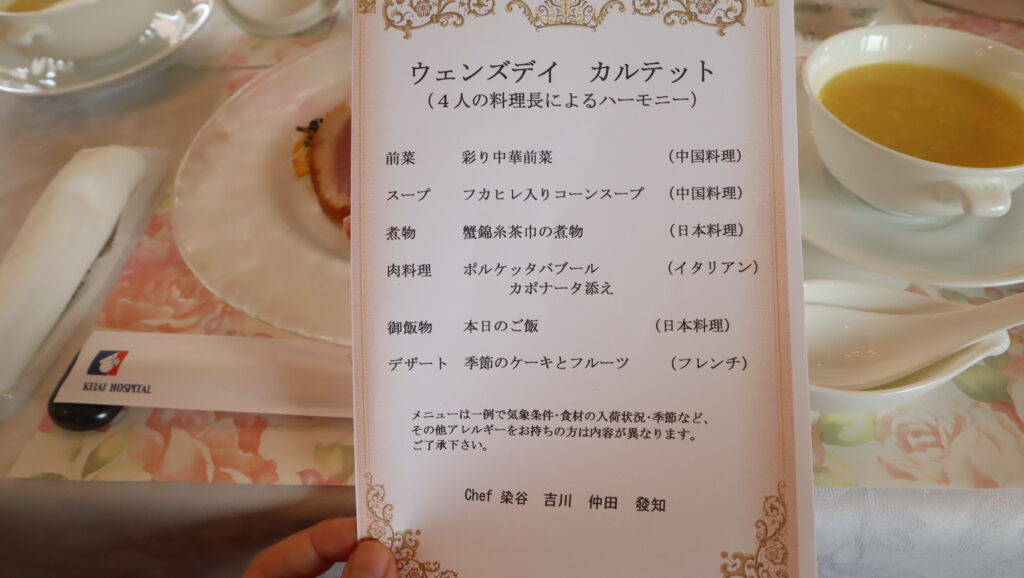 ウェンズデイ　カルテット
（４人の料理長によるハーモニー）
前菜　彩り中華前菜　（中国料理）
スープ　フカヒレ入りコーンスープ　（中国料理）
煮物　蟹錦糸茶巾の煮物　（日本料理）
肉料理　ポルケッタバブール　（イタリアン）
カポナータ添え
御飯物　本日のご飯　（日本料理）
デザート　季節のケーキとフルーツ　（フレンチ）
メニューは一例で気象条件・食材の入荷状況・季節など、
その他アレルギーをお持ちの方は内容が異なります。
ご了承下さい。
Chef 染谷　吉川　仲田　發知
KEIAI HOSPITAL